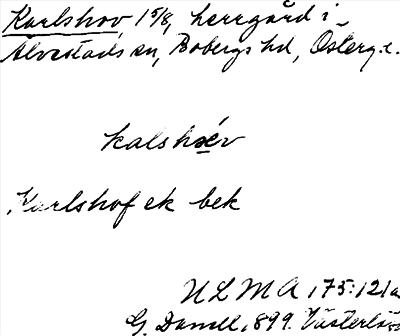 Karlshov, 15/8, herrgård i
Alvestads sn, Bobergs hd, Österg.l.
kalshɷv
Karlshof ek bek
ULMA 175:121a
G. Danell, 1899. Västerlösa